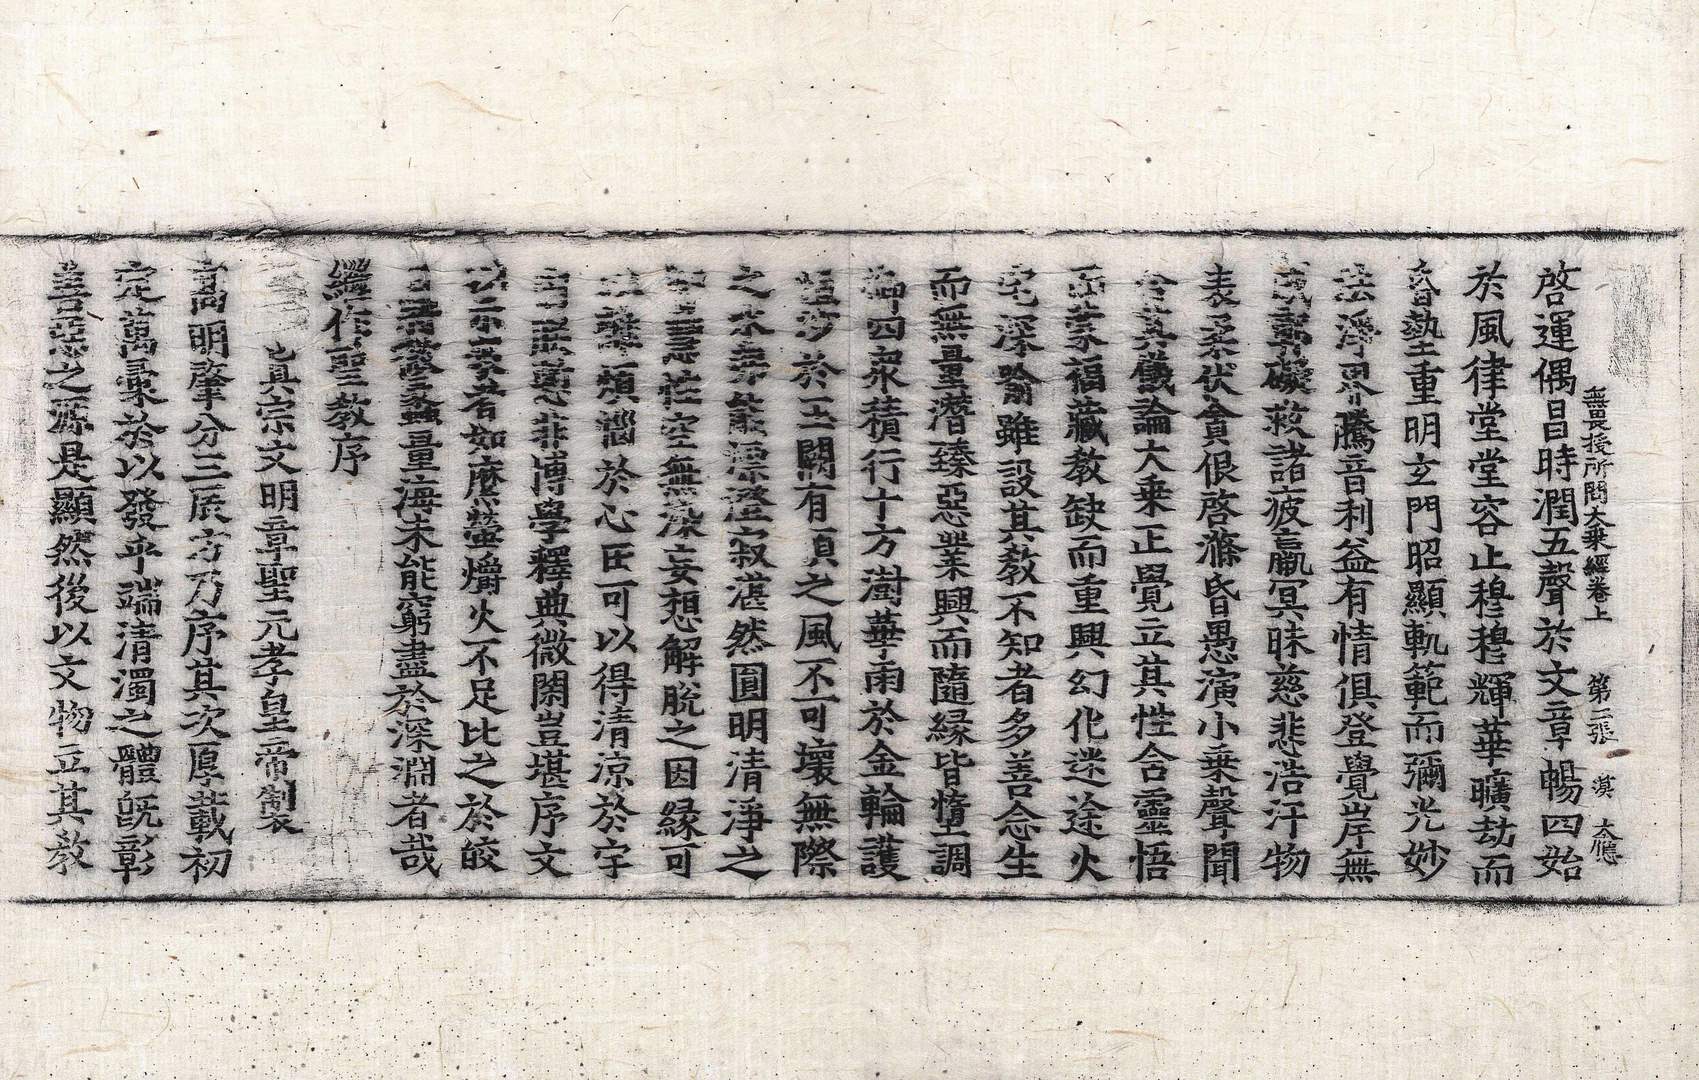 無畏授所問大乘經卷上 第二張 漢 大應
啓運偶昌時潤五聲於文章暢四始
於風律堂堂容止穆穆輝華曠劫而
昏蟄重明玄門昭顯軌範而彌光妙
法淨界騰音利益有情俱登覺岸無
成鄣礙救諸疲羸冥昧慈悲浩汗物
表柔伏貪佷啓滌昏愚演小乘聲聞
合其儀論大乘正覺立其性含靈悟
而蒙福藏教缺而重興幻化迷途火
宅深喻雖設其教不知者多善念生
而無量潛臻惡業興而隨緣皆墮調
御四衆積行十方澍華雨於金輪護
恒沙於玉闕有頂之風不可壞無際
之水弗能漂澄寂湛然圓明清淨之
智慧性空無染妄想解脫之因緣可
以離煩惱於心田可以得清涼於宇
宙朕慙非博學釋典微閑豈堪序文
以示來者如縻螢爝火不足比之於皎
日將微蠡量海未能窮盡於深淵者哉
繼作聖教序
真宗文明章聖元孝皇帝製
高明肇分三辰方乃序其次厚載初
定萬彙於以發乎端清濁之體旣彰
善惡之源是顯然後以文物立其教